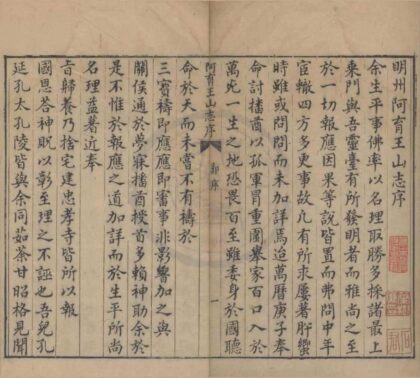 明州阿育王山志序
余生平事佛率以名理取勝多採諸最上
乘門與吾靈臺有所發明者而雅尚之至
於一切報應因果等說皆置而弗問中年
宦轍四方多更事故凡有所求屢著肸蠁
時雖或問問而未加詳焉迨萬曆庚子奉
命討播酋以孤軍冒重圍舉家百口入於
萬死一生之地恐畏百至雖委身於國聽
阿育王山志序
郭序
一
命於天而未嘗不有禱於
三寶禱即應應即審事非影響加之與
關侯通於夢寐播酋授首多賴神助余於
是不惟於報應之道加詳而於生平所尚
名理益著近奉
旨歸養乃捨宅建忠孝寺皆所以報
國恩答神貺以彰至理之不誣也吾兒孔
延孔太孔陵皆與余同茹荼甘昭格見聞